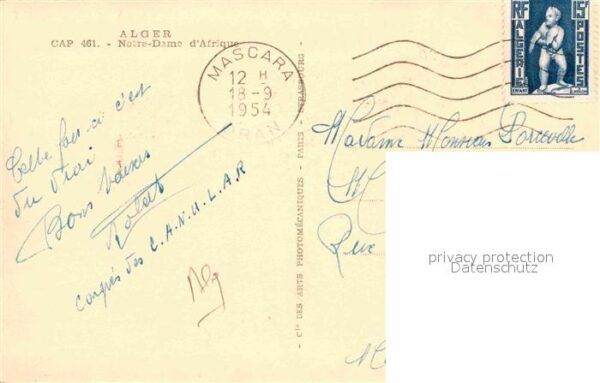 ALGER
CAP 461. - Notre-Dame d'Afrique
MASCARA
12 H
18-9
1954
ORAN
RF
15F
POSTES
ALGERIE
Cette fois-ci c'est
du vrai
Bons baisers
congrés des C.A.N.U.L.A.R
Alg
Cie DES ARTS PHOTOMÉCANIQUES - PARIS - STRASBOURG -
Madame Monsieur
Rue
privacy protection
Datenschutz